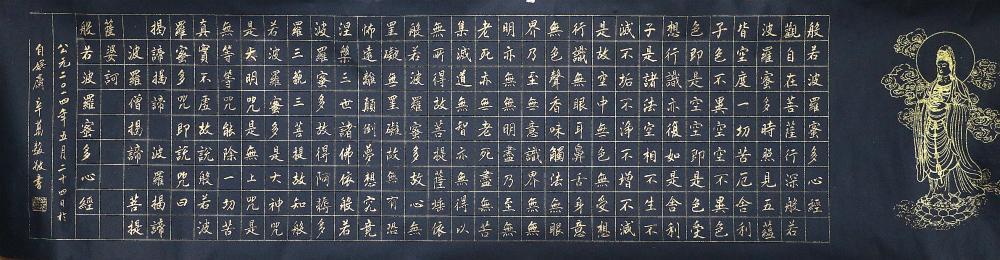 般若波羅蜜多心經
觀自在菩薩行深般若
波羅蜜多時照見五蘊
皆空度一切苦厄舍利
子色不異空空不異色
色即是空空即是色受
想行識亦復如是舍利
子是諸法空相不生不
滅不垢不淨不增不減
是故空中無色無受想
行識無眼耳鼻舌身意
無色聲香味觸法無眼
界乃至無意識界無無
明亦無無明盡乃至無
老死亦無老死盡無苦
集滅道無智亦無得以
無所得故菩提薩埵依
般若波羅蜜多故心無
罣礙無罣礙故無有恐
怖遠離顛倒夢想究竟
涅槃三世諸佛依般若
波羅蜜多故得阿耨多
羅三藐三菩提故知般
若波羅蜜多是大神咒
是大明咒是無上咒是
無等等咒能除一切苦
真實不虛故說般若波
羅蜜多咒即說咒曰
揭諦揭諦 波羅揭諦
波羅僧揭諦 菩提
薩婆訶
般若波羅蜜多心經
公元二〇一四年五月二十四日於
敬書